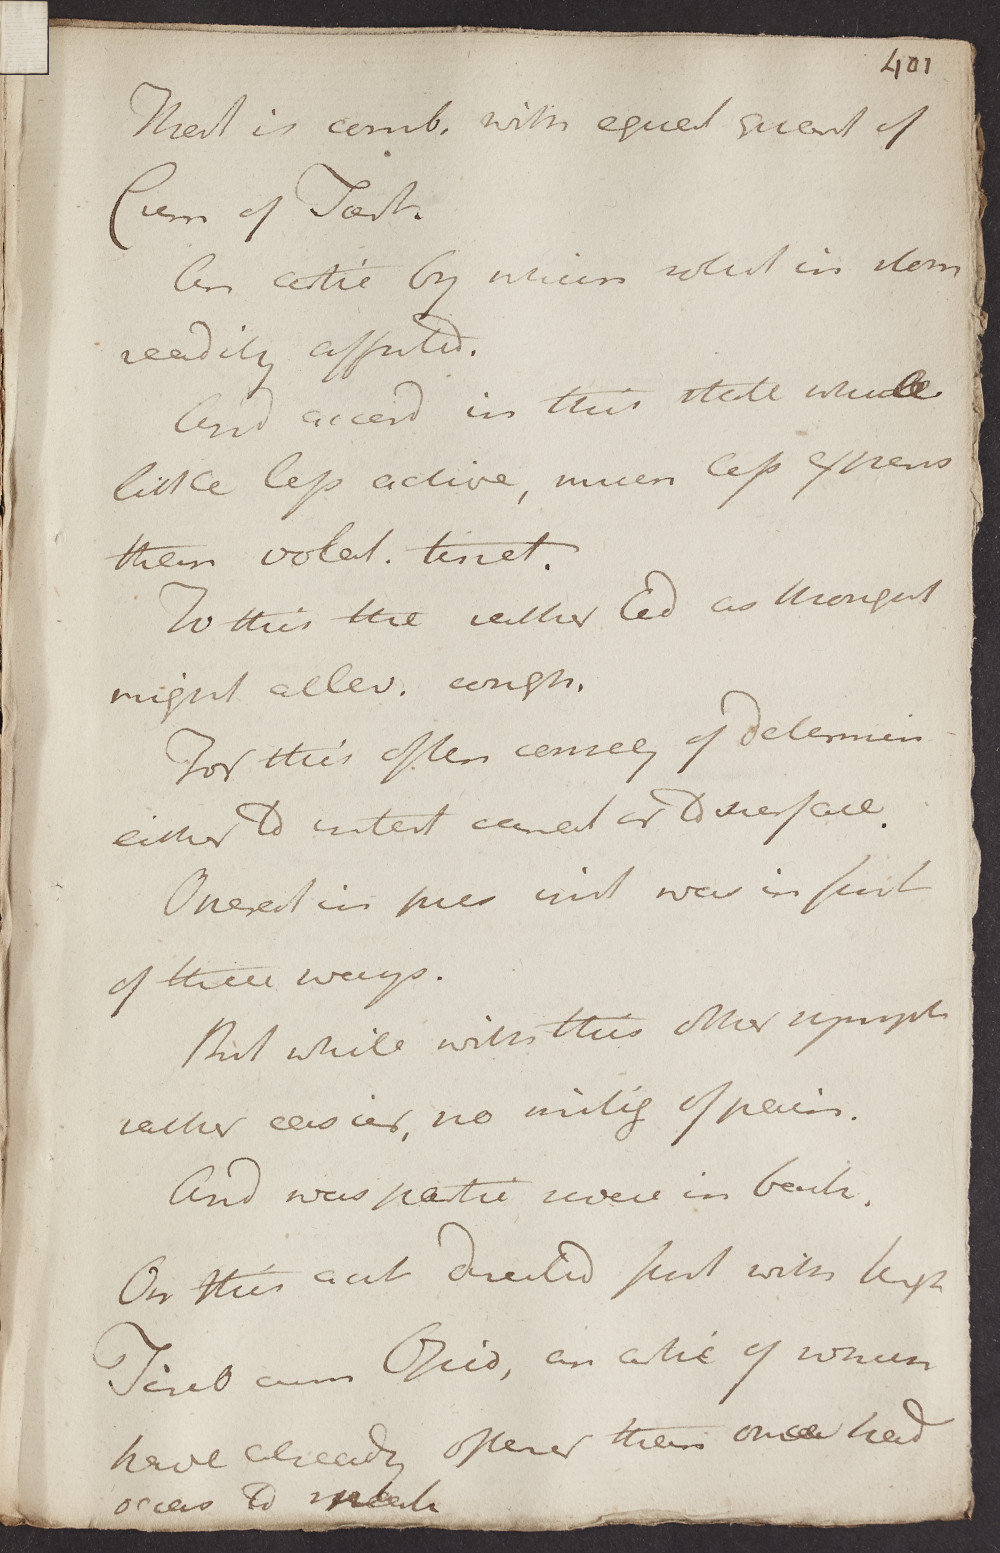 401
That is comb. with equal quant of
Crem of Tart.
An artic by which solut in stom
readily affected.
And accord in this state while
little less active, much less expens
than volat. tinct.
To this the rather led as thought
might allev. cough.
For this often conseq of determin
either to intest canal or to surface.
Operat in pres inst was in first
of these ways.
But while with this other sympt
rather easier, no mitig of pain.
And was partic severe in back.
On this acct directed first with
Tinb cum Opio, an artic of which
have already oftener than once had
occas to speak